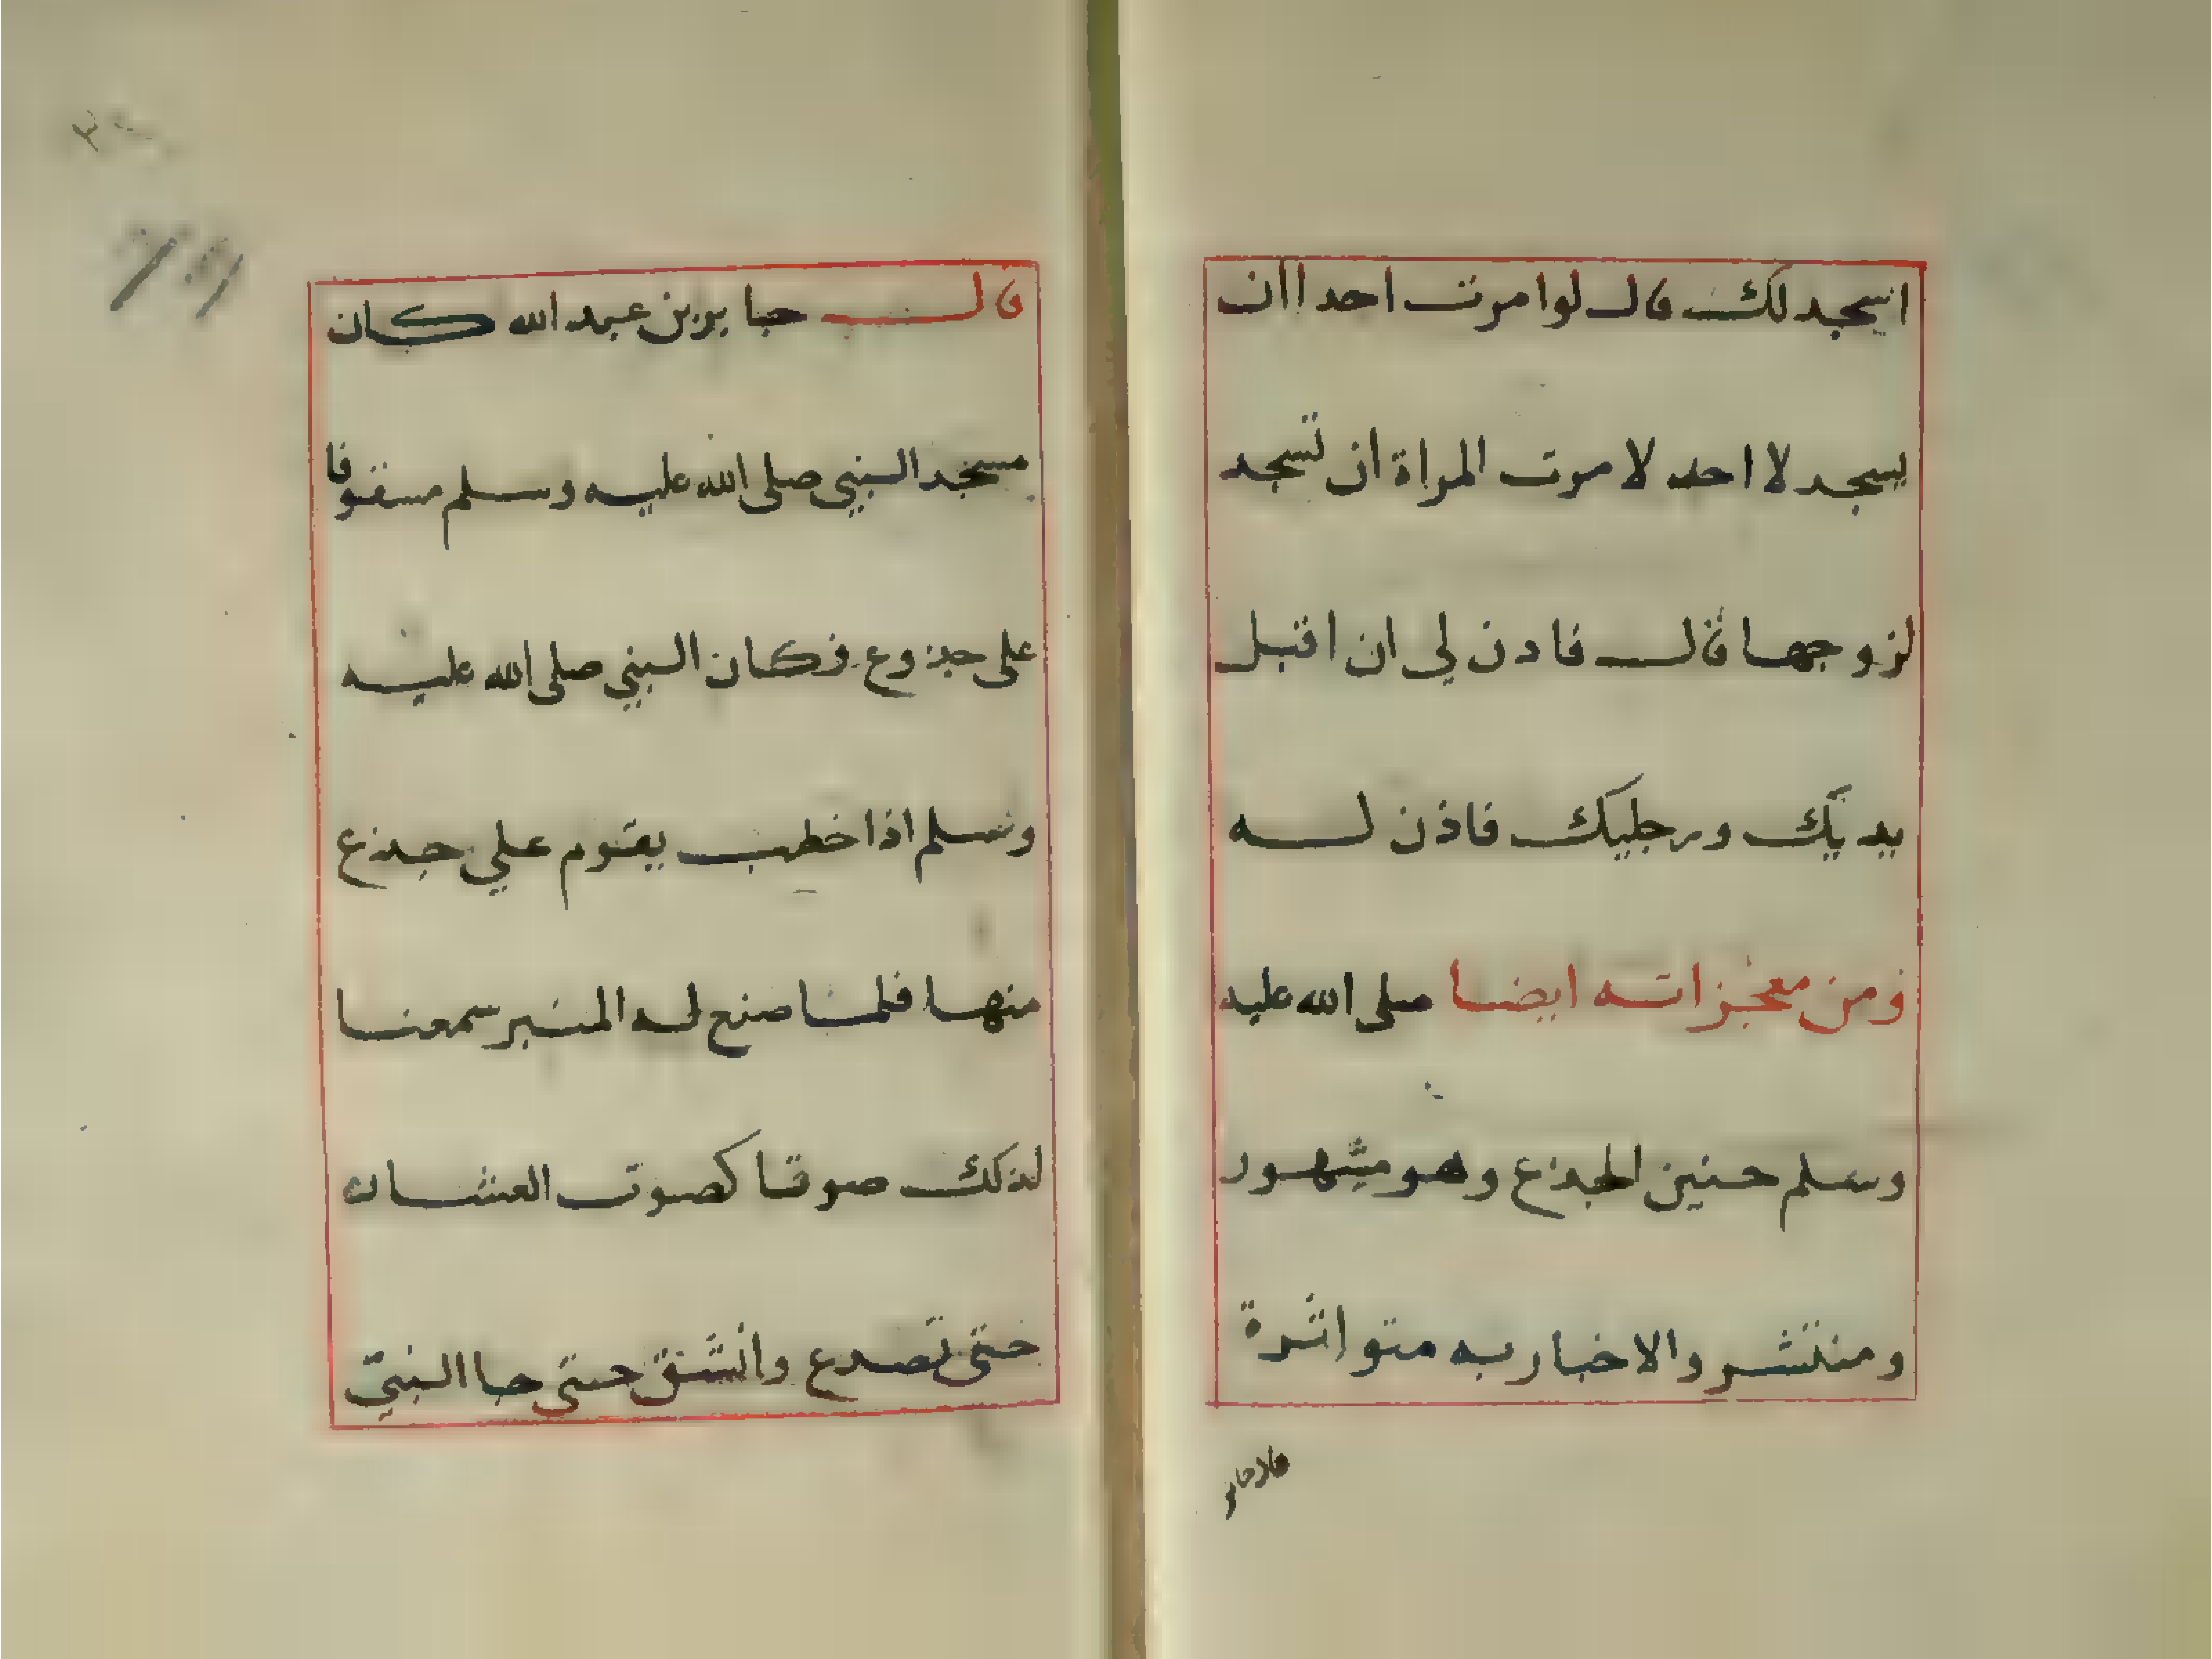 اسجد لك قال لو امرت احدا ان
يسجد لا احد لامرت المراة ان تسجد
لزوجها قال فادن لي ان اقبل
يديك ورجليك فاذن له
ومن معجزاته ايضا صلى الله عليه
وسلم حنين الجذع وهو مشهور
ومنتشر والاخبار به متواترة
قال جابر بن عبد الله كان
مسجد النبي صلى الله عليه وسلم مسقوفا
على جذوع فكان النبي صلى الله عليه
وسلم اذا خطب يقوم علي جذع
منها فلما صنع له المنبر سمعنا
لذلك صوتا كصوت العشار
حتى تصدع وانشق حتى جا النبي